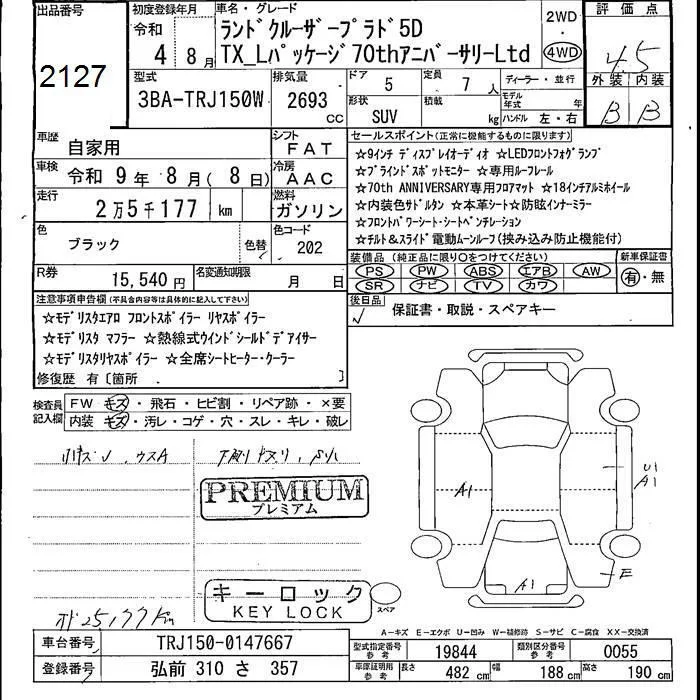 出品番号
2127
初度登録年月
令和
4 8月
車名・グレード
ランドクルーザープラド5D
TX_Lパッケージ70thアニバーサリーLtd
2WD
・
4WD
評価点
4.5
外装 内装
B B
型式
3BA-TRJ150W
排気量
2693
CC
ドア
5
定員
7 人
形状
SUV
積載
kg
ディーラー・並行
モデル年式 年
ハンドル 左・右
車歴
自家用
シフト
FAT
車検
令和 9年 8月( 8日)
冷房
AAC
走行
2万5千177 km
燃料
ガソリン
色
ブラック
色替
色コード
202
R券
15,540 円
名変通知期限
月 日
セールスポイント(正常に機能するものに限ります)
☆9インチ ディスプレイオーディオ ☆LEDフロントフォグランプ
☆ブラインドスポットモニター ☆専用ルーフレール
☆70th ANNIVERSARY専用フロアマット ☆18インチアルミホイール
☆内装色サドルタン ☆本革シート☆防眩インナーミラー
☆フロントパワーシート・シートベンチレーション
☆チルト&スライド電動ムーンルーフ(挟み込み防止機能付)
装備品 (純正品に限り○をつけてください)
PS PW ABS エアB AW
SR ナビ TV カワ
新車保証書
有・無
後日品
保証書・取説・スペアキー
注意事項申告欄(不具合内容等は具体的に記入して下さい)
☆モデリスタエアロ フロントスポイラー リヤスポイラー
☆モデリスタ マフラー ☆熱線式ウインドシールドデアイサー
☆モデリスタリヤスポイラー ☆全席シートヒーター・クーラー
修復歴 有〔箇所 〕
検査員記入欄
FW キズ・飛石・ヒビ割・リペア跡・×要
内装 キズ・汚レ・コゲ・穴・スレ・キレ・破レ
PREMIUM
プレミアム
キーロック
KEY LOCK
25,177km
A1
U1
A1
E
A1
スペア
A-キズ E-エクボ U-凹み W-補修跡 S-サビ C-腐食 XX-交換済
車台番号
TRJ150-0147667
登録番号
弘前 310 さ 357
型式指定番号
参考
19844
類別区分番号
参考
0055
車庫証明用
参考
長さ 482 cm 幅 188 cm 高さ 190 cm